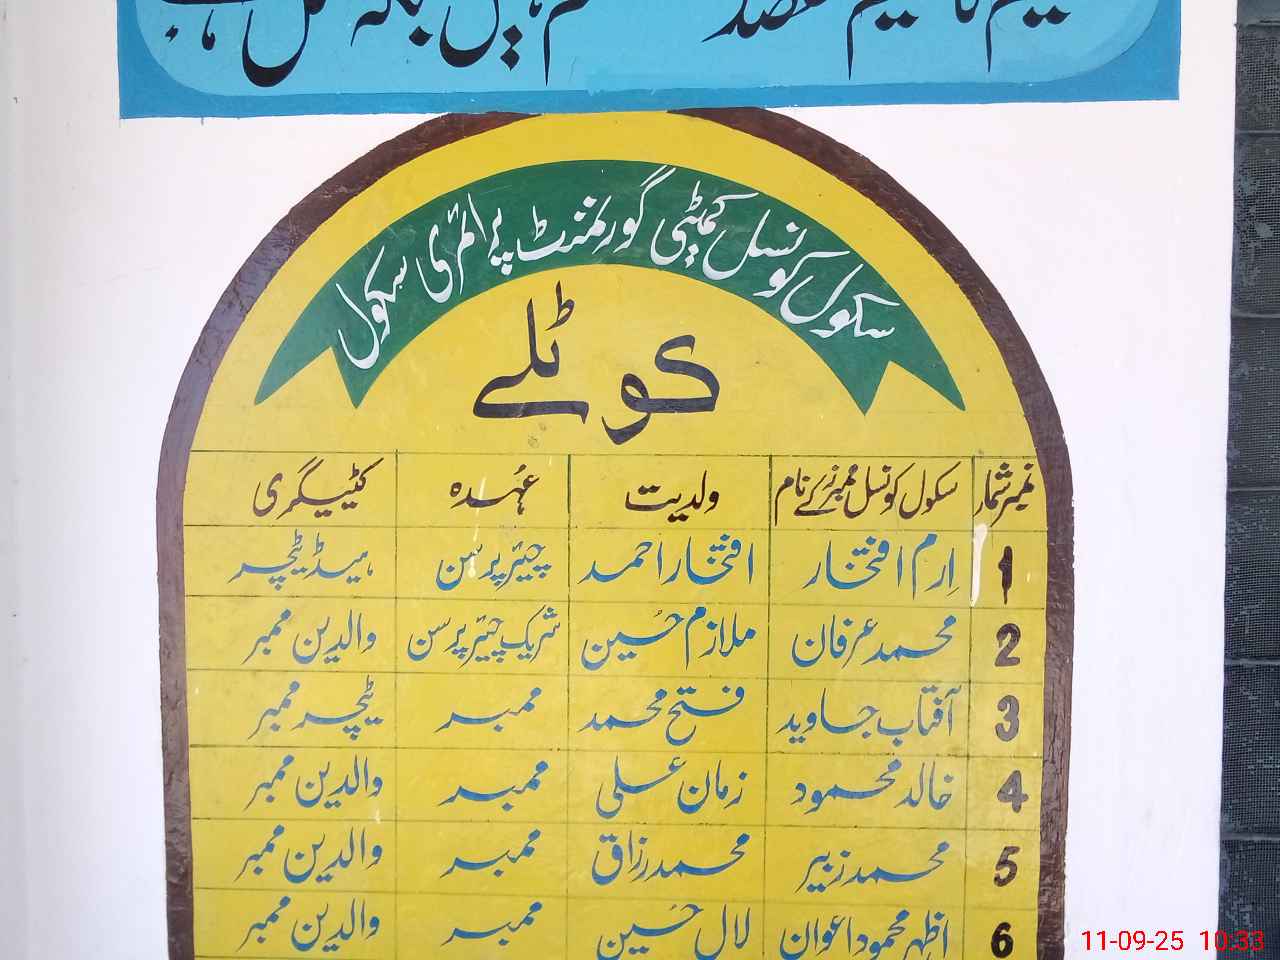 سکول کونسل کمیٹی گورنمنٹ پرائمری سکول
کوٹلے
نمبر شمار سکول کونسل ممبرز کے نام ولدیت عہدہ کیٹیگری
1 اِرم افتخار افتخار احمد چیئرپرسن ہیڈ ٹیچر
2 محمد عرفان ملازم حسین شریک چیئرپرسن والدین ممبر
3 آفتاب جاوید فتح محمد ممبر ٹیچر ممبر
4 خالد محمود زمان علی ممبر والدین ممبر
5 محمد زبیر محمد رزاق ممبر والدین ممبر
6 اظہر محمود اعوان لال حسین ممبر والدین ممبر
11-09-25 10:33